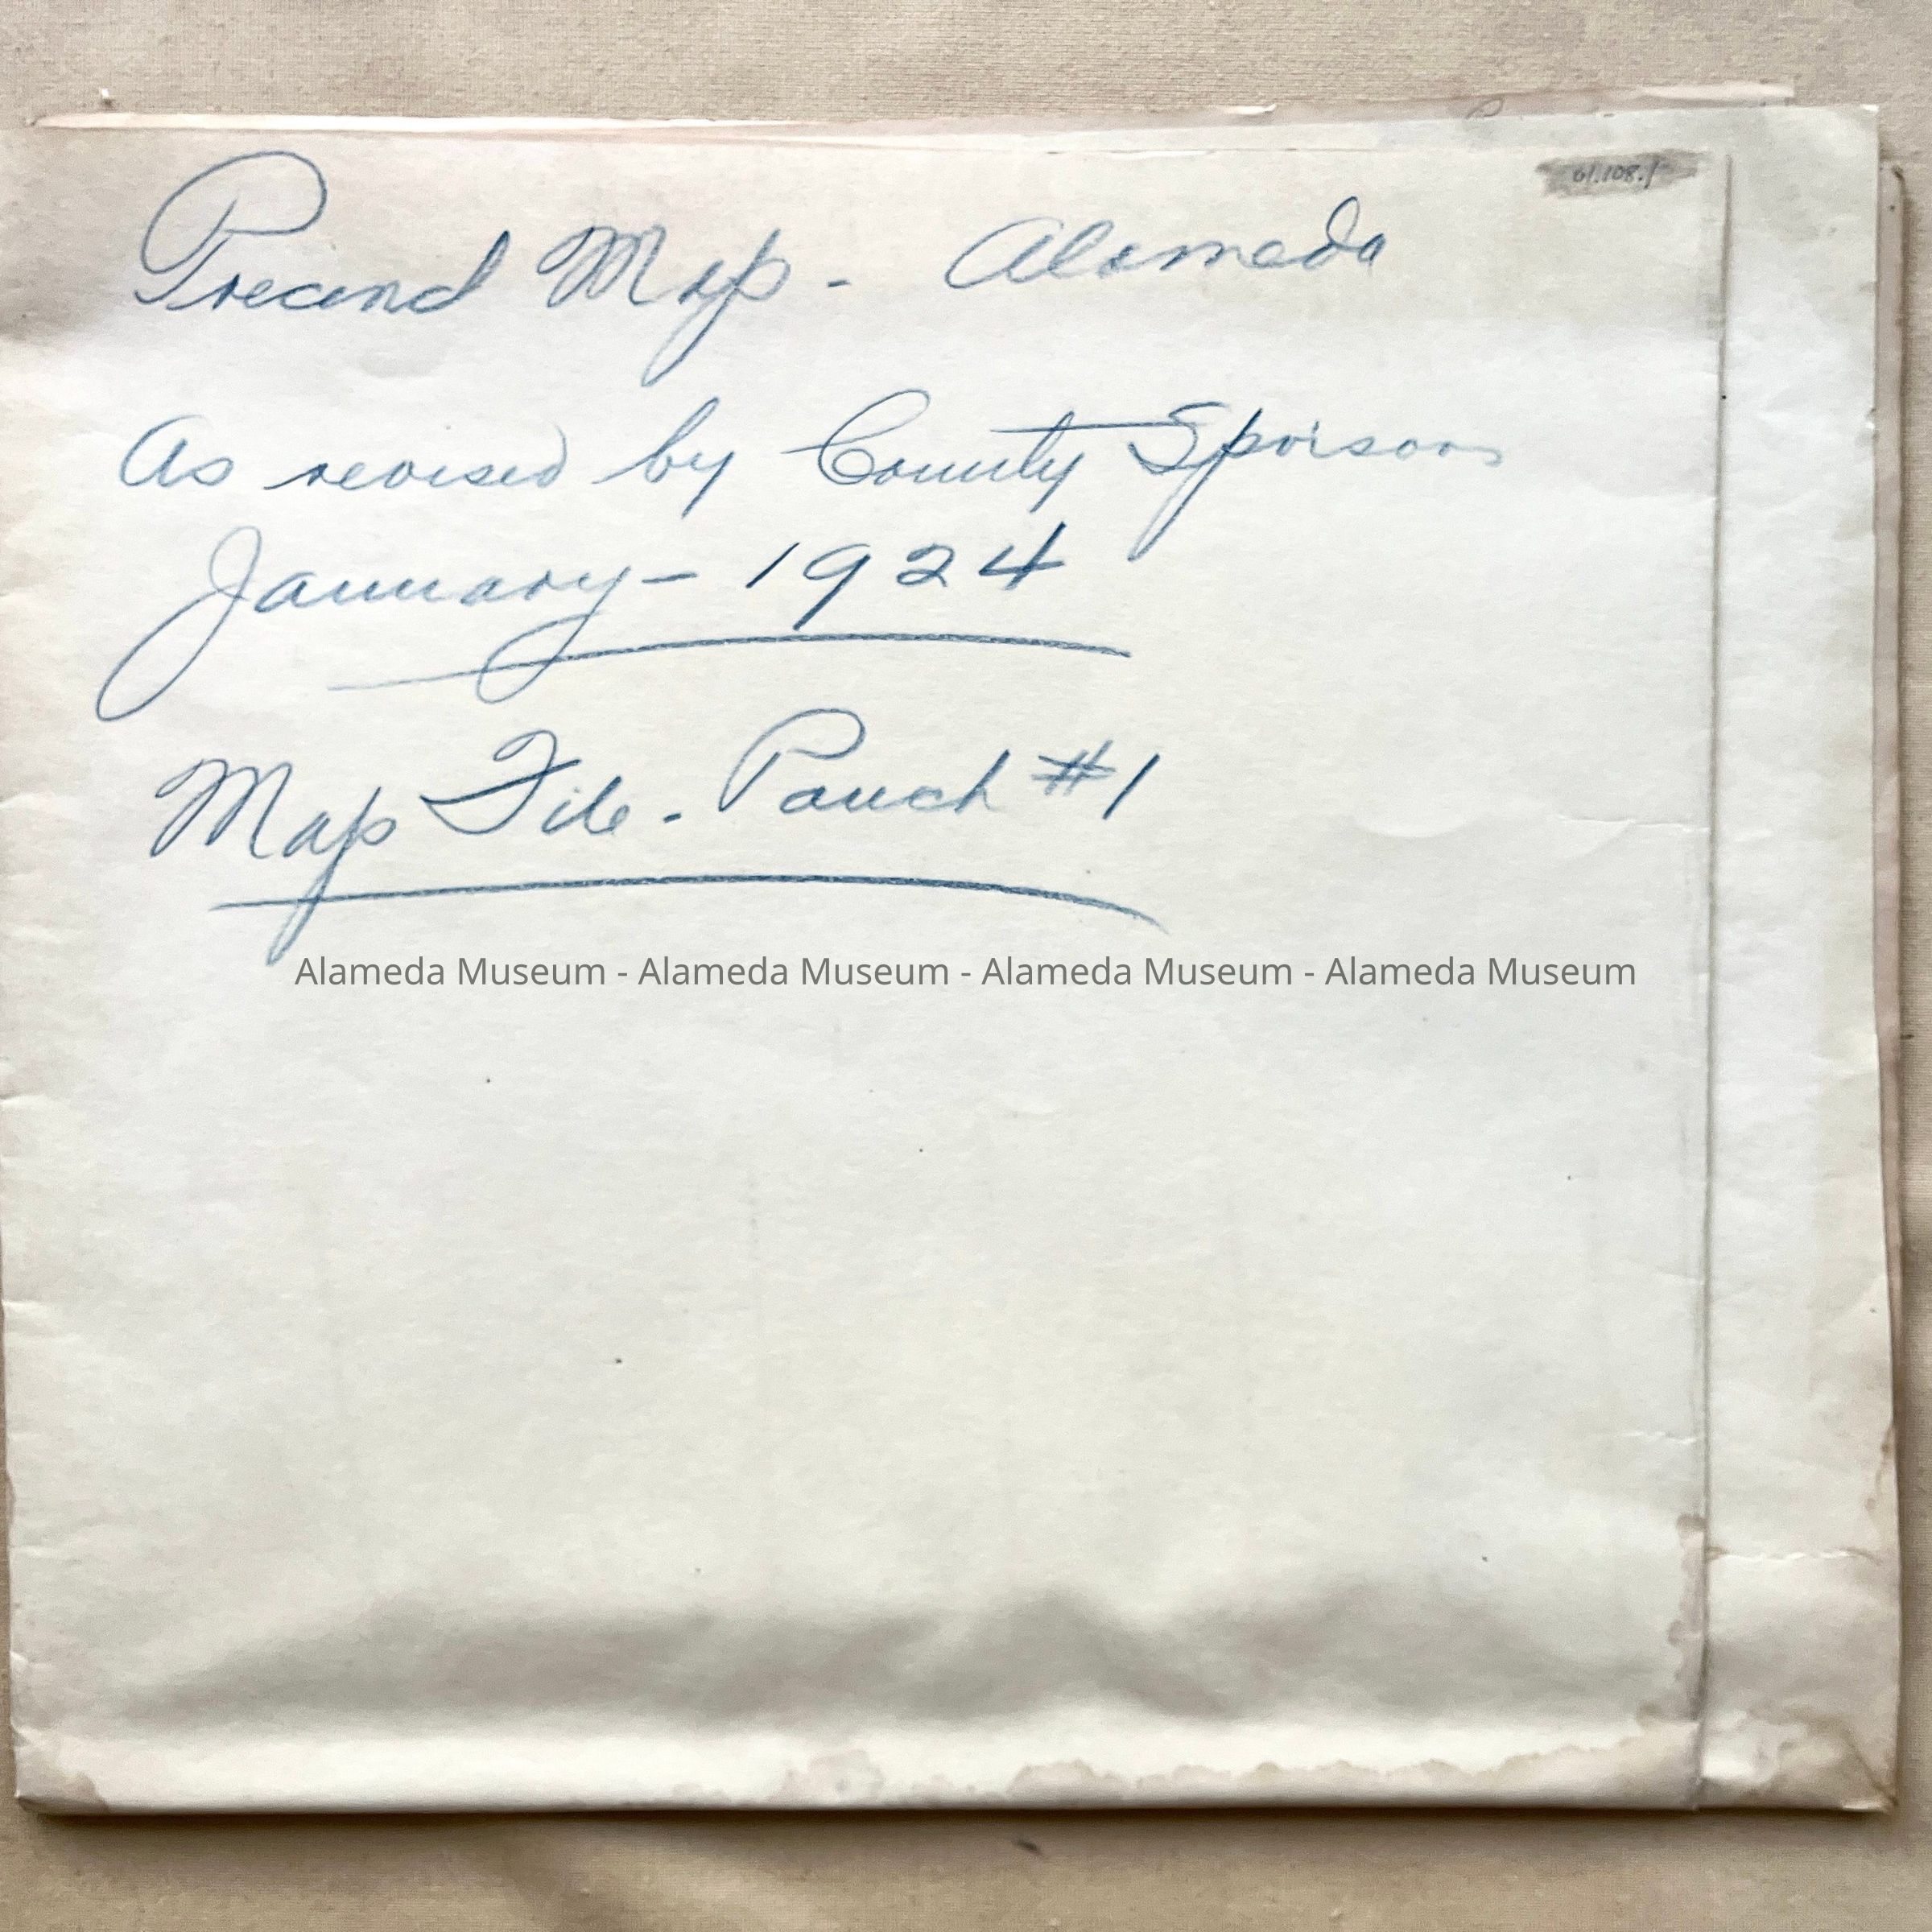 Precinct Map - Alameda
61.108.1
As revised by County Spvisors
January - 1924
Map File - Pouch #1
Alameda Museum - Alameda Museum - Alameda Museum - Alameda Museum